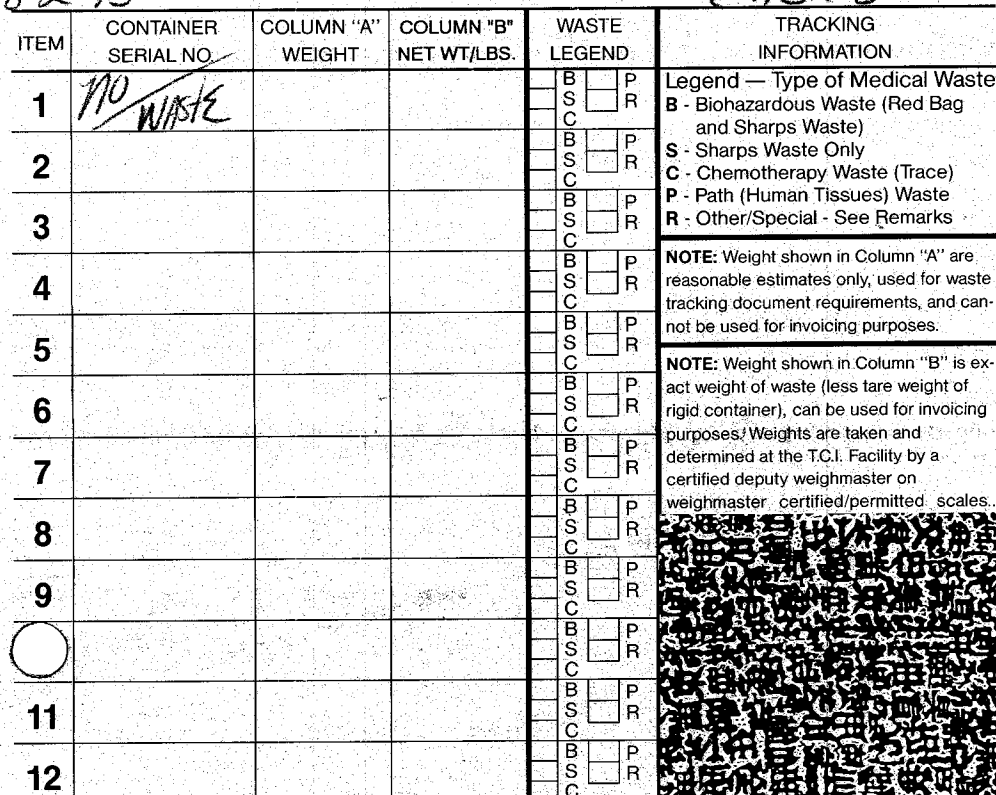 ITEM CONTAINER SERIAL NO. COLUMN "A" WEIGHT COLUMN "B" NET WT/LBS. WASTE LEGEND TRACKING INFORMATION
1 NO WASTE B S C P R
2 B S C P R
3 B S C P R
4 B S C P R
5 B S C P R
6 B S C P R
7 B S C P R
8 B S C P R
9 B S C P R
B S C P R
11 B S C P R
12 B S C P R
Legend — Type of Medical Waste
B - Biohazardous Waste (Red Bag
and Sharps Waste)
S - Sharps Waste Only
C - Chemotherapy Waste (Trace)
P - Path (Human Tissues) Waste
R - Other/Special - See Remarks
NOTE: Weight shown in Column "A" are
reasonable estimates only, used for waste
tracking document requirements, and can-
not be used for invoicing purposes.
NOTE: Weight shown in Column "B" is ex-
act weight of waste (less tare weight of
rigid container), can be used for invoicing
purposes. Weights are taken and
determined at the T.C.I. Facility by a
certified deputy weighmaster on
weighmaster certified/permitted scales.